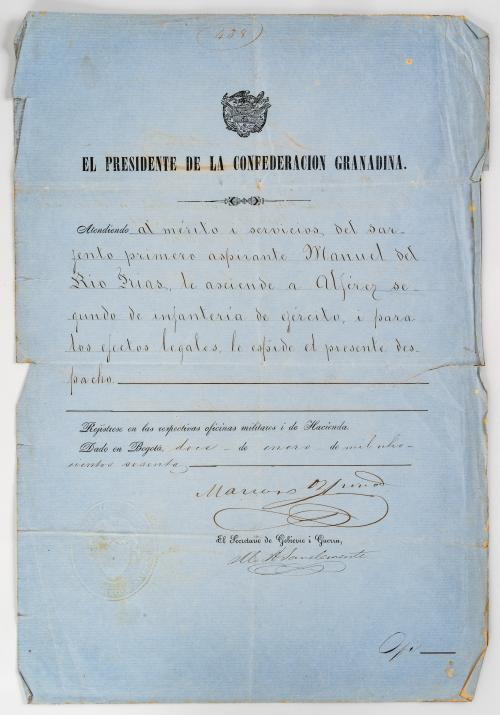 (428)
EL PRESIDENTE DE LA CONFEDERACION GRANADINA.
Atendiendo al mérito i servicios, del sar-
jento primero aspirante Manuel del
Rio Frias, le asciende a Alférez se-
gundo de infantería de ejército, i para
los efectos legales, le espide el presente des-
pacho.
Rejístrese en las respectivas oficinas militares i de Hacienda.
Dado en Bogotá, doce de enero de mil ocho-
cientos sesenta
Mariano Ospina
El Secretario de Gobierno i Guerra,
M. A. Sanclemente